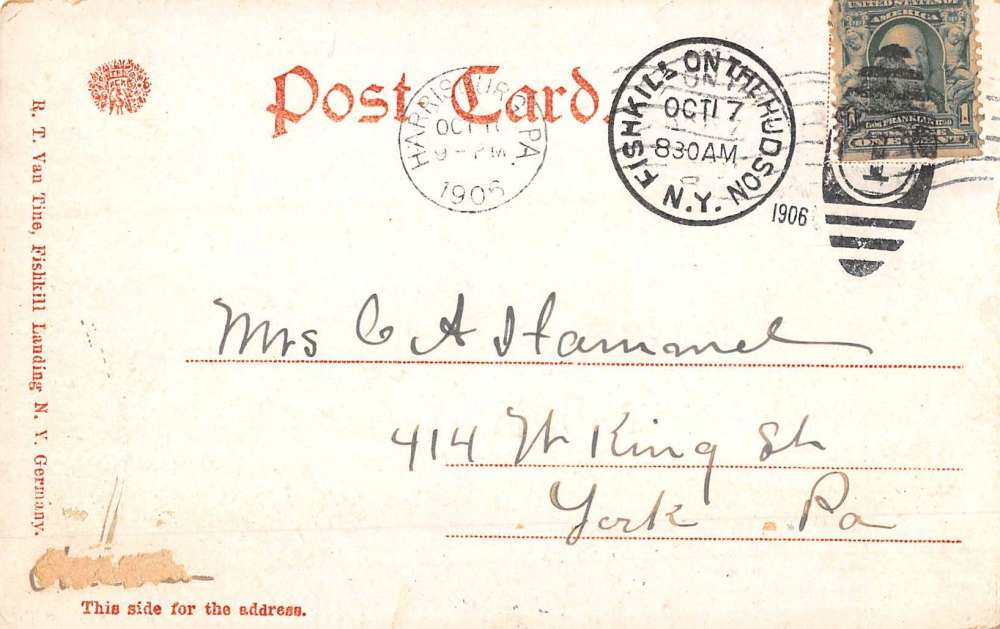 Post Card.
HARRISBURG, PA.
OCT 1
9-PM
1906
FISHKILL ON THE HUDSON
OCT 17
830AM
N.Y.
1906
UNITED STATES OF
AMERICA
FRANKLIN
ONE CENT
R. T. Van Tine, Fishkill Landing N. Y. Germany.
Mrs C A Hammel
414 W King St
York Pa
This side for the address.